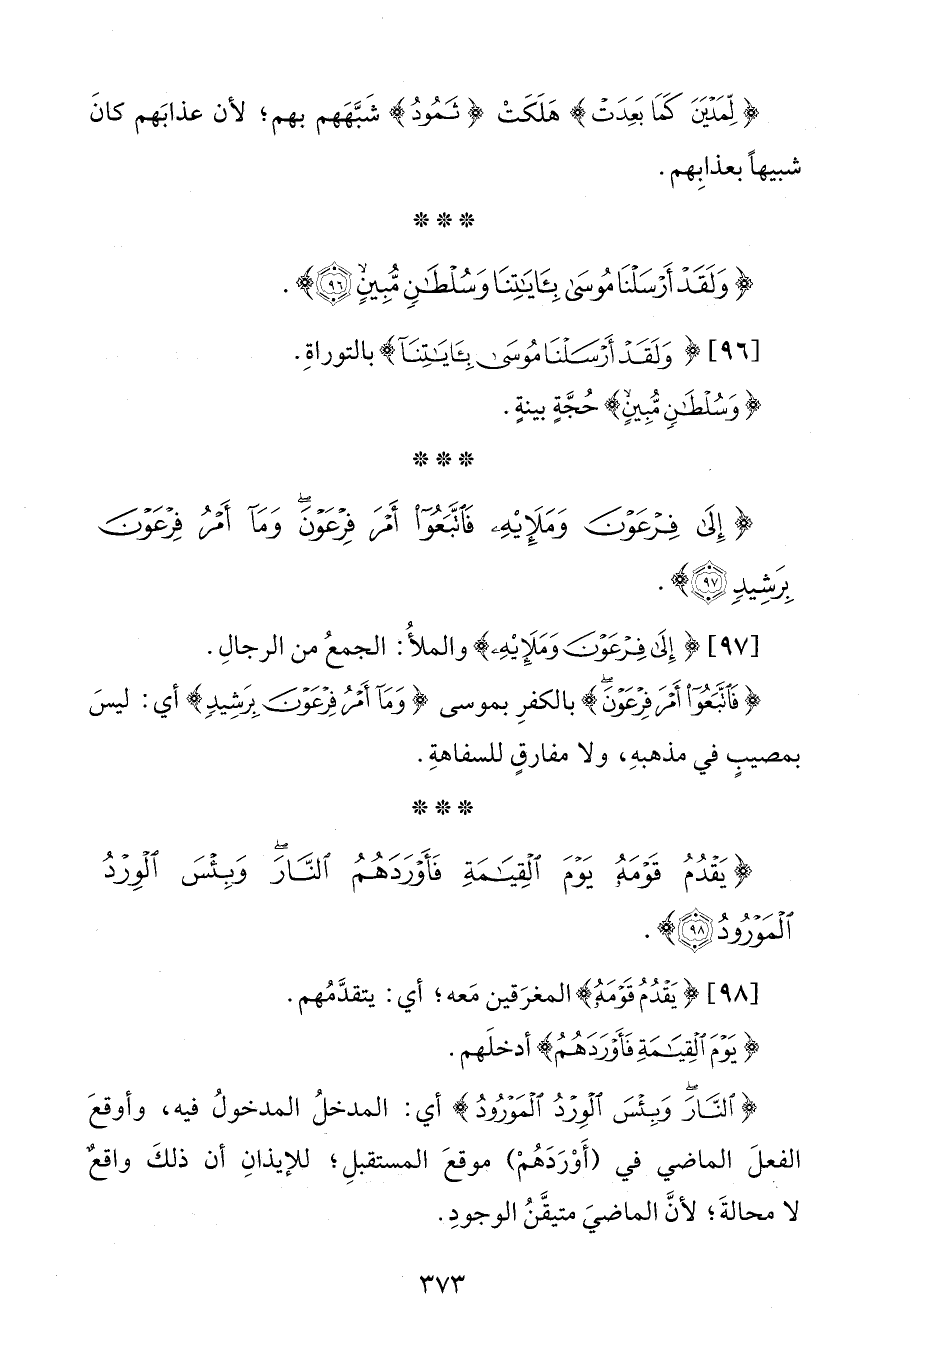 ﴿لِّمَدْيَنَ كَمَا بَعِدَتْ﴾ هَلَكَتْ ﴿ثَمُودُ﴾ شَبَّهَهم بهم؛ لأن عذابَهم كانَ
شبيهاً بعذابِهم.
* * *
﴿وَلَقَدْ أَرْسَلْنَا مُوسَىٰ بِـَٔايَـٰتِنَا وَسُلْطَـٰنٍ مُّبِينٍ ۝٩٦﴾.
[٩٦] ﴿وَلَقَدْ أَرْسَلْنَا مُوسَىٰ بِـَٔايَـٰتِنَآ﴾ بالتوراةِ.
﴿وَسُلْطَـٰنٍ مُّبِينٍ﴾ حُجَّةٍ بينةٍ.
* * *
﴿إِلَىٰ فِرْعَوْنَ وَمَلَإِي۟هِۦ فَٱتَّبَعُوٓا۟ أَمْرَ فِرْعَوْنَ ۖ وَمَآ أَمْرُ فِرْعَوْنَ
بِرَشِيدٍ ۝٩٧﴾.
[٩٧] ﴿إِلَىٰ فِرْعَوْنَ وَمَلَإِي۟هِۦ﴾ والملأُ: الجمعُ من الرجالِ.
﴿فَٱتَّبَعُوٓا۟ أَمْرَ فِرْعَوْنَ ۖ﴾ بالكفرِ بموسى ﴿وَمَآ أَمْرُ فِرْعَوْنَ بِرَشِيدٍ﴾ أي: ليسَ
بمصيبٍ في مذهبهِ، ولا مفارقٍ للسفاهةِ.
* * *
﴿يَقْدُمُ قَوْمَهُۥ يَوْمَ ٱلْقِيَـٰمَةِ فَأَوْرَدَهُمُ ٱلنَّارَ ۖ وَبِئْسَ ٱلْوِرْدُ
ٱلْمَوْرُودُ ۝٩٨﴾.
[٩٨] ﴿يَقْدُمُ قَوْمَهُۥ﴾ المغرَقين مَعه؛ أي: يتقدَّمُهم.
﴿يَوْمَ ٱلْقِيَـٰمَةِ فَأَوْرَدَهُمُ﴾ أدخلَهم.
﴿ٱلنَّارَ ۖ وَبِئْسَ ٱلْوِرْدُ ٱلْمَوْرُودُ﴾ أي: المدخلُ المدخولُ فيه، وأوقعَ
الفعلَ الماضي في (أَوْرَدَهُمْ) موقعَ المستقبلِ؛ للإيذانِ أن ذلكَ واقعٌ
لا محالةَ؛ لأنَّ الماضيَ متيقَّنُ الوجودِ.
٣٧٣